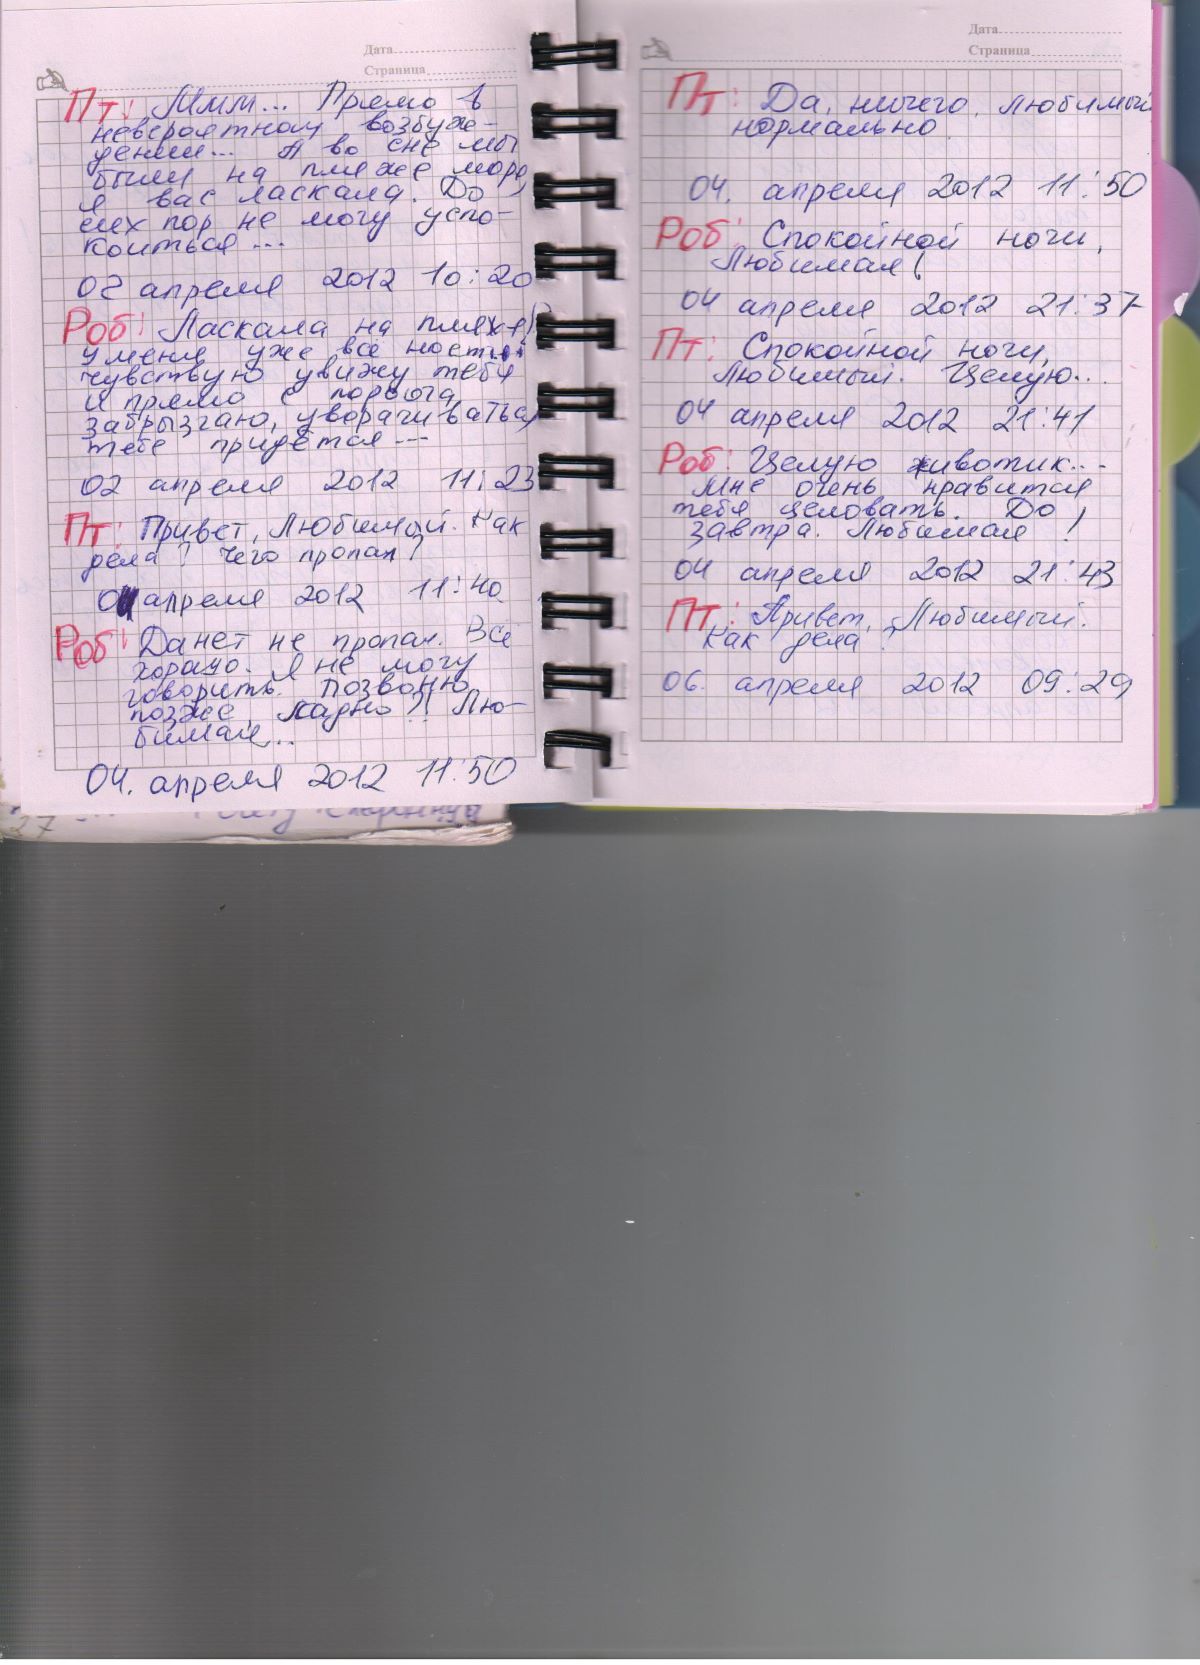 Дата
Страница
Пт: Ммм... Прямо в
невероятном возбуж-
дении... А во сне мы
были на пляже моря,
я вас ласкала. До
сих пор не могу успо-
коиться...
02 апреля 2012 10:20
Роб: Ласкала на пляже!?
У меня уже всё
чувствую увижу тебя
и прямо с порога
забрызгаю, уворачиваться
тебе придётся ---
02 апреля 2012 11:23
Пт: Привет, Любимый. Как
дела? Чего пропал?
04 апреля 2012 11:40
Роб: Да нет не пропал. Всё
хорошо. Я не могу
говорить. Позвоню
позже, ладно?! Лю-
бимая...
04. апреля 2012 11:50
27
Дата
Страница
Пт: Да, ничего, Любимый,
нормально.
04. апреля 2012 11:50
Роб: Спокойной ночи,
Любимая!
04 апреля 2012 21:37
Пт: Спокойной ночи,
Любимый. Целую...
04 апреля 2012 21:41
Роб: Целую животик...
Мне очень нравится
тебя целовать. До
завтра. Любимая!
04 апреля 2012 21:43
Пт: Привет, Любимый.
Как дела?
06. апреля 2012 09:29